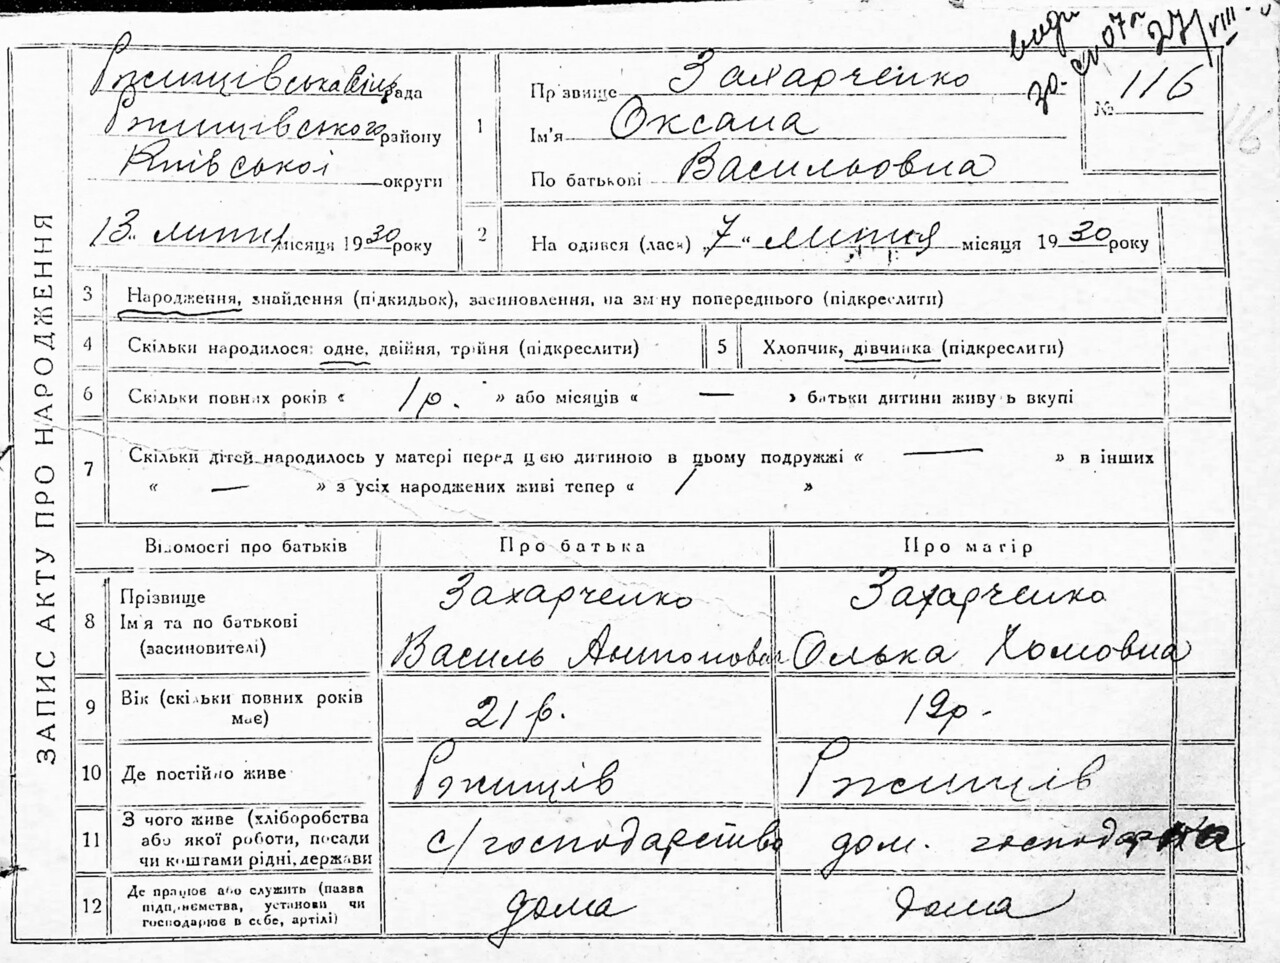 27/VIII
Ржищівська сіль рада
Ржищівського району
Київської округи
13 липня місяця 1930 року
1
Прізвище Захарченко
Ім'я Оксана
По батькові Васильовна
№ 116
2
На одився (лася) „7" липня місяця 1930 року
ЗАПИС АКТУ ПРО НАРОДЖЕННЯ
3 Народження, знайдення (підкидьок), засиновлення, на зміну попереднього (підкреслити)
4 Скільки народилося: одне, двійня, трійня (підкреслити)
5 Хлопчик, дівчинка (підкреслити)
6 Скільки повних років « 1 р. » або місяців « — » батьки дитини живуть вкупі
7 Скільки дітей народилось у матері перед цією дитиною в цьому подружжі « — » в інших
« — » з усіх народжених живі тепер « / »
Відомості про батьків Про батька Про матір
8 Прізвище
Ім'я та по батькові
(засиновителі)
Захарченко
Василь Антонович
Захарченко
Олька Хомовна
9 Вік (скільки повних років
має)
21 р.
19 р.
10 Де постійно живе Ржищів Ржищів
11 З чого живе (хліборобства
або якої роботи, посади
чи коштами рідні, держави
с/господарство
дом. господарка
12 Де працює або служить (назва
підприємства, установи чи
господарює в себе, артілі)
дома
дома